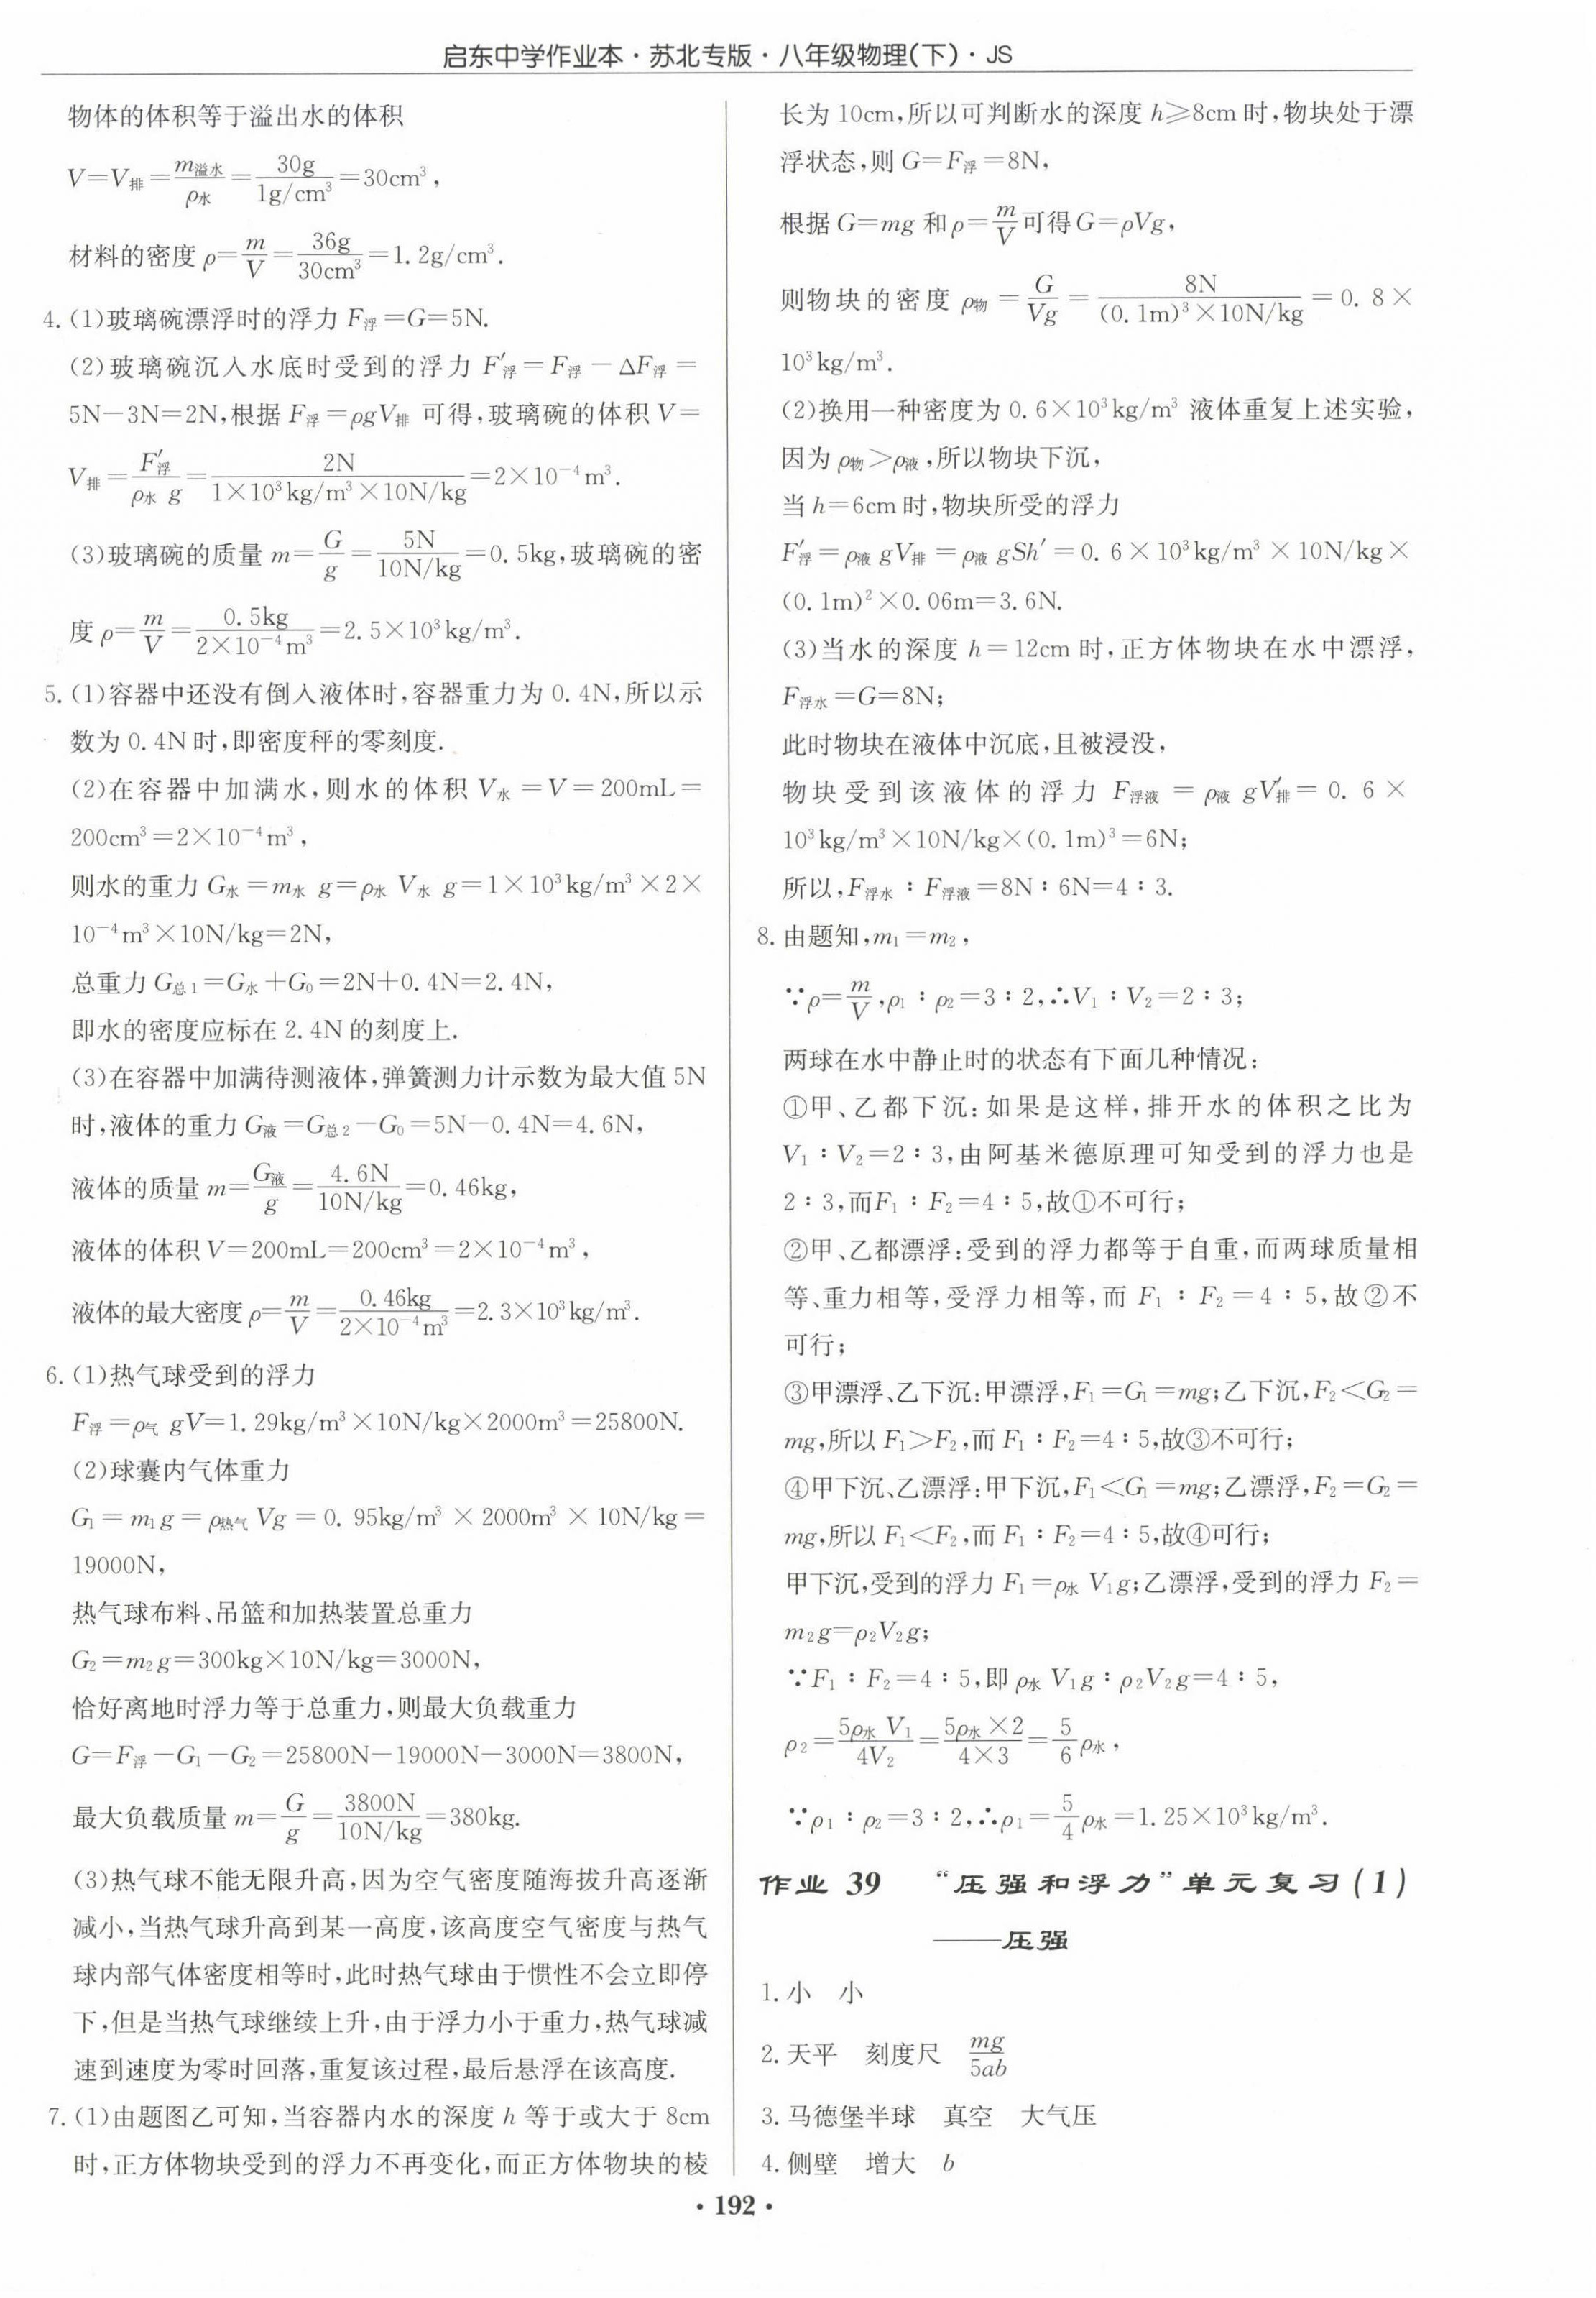 启东中学作业本·苏北专版·八年级物理(下)·JS
物体的体积等于溢出水的体积
V=V排=m溢水/ρ水=30g/1g/cm³=30cm³,
材料的密度ρ=m/V=36g/30cm³=1.2g/cm³.
4.(1)玻璃碗漂浮时的浮力F浮=G=5N.
(2)玻璃碗沉入水底时受到的浮力F′浮=F浮-ΔF浮=
5N-3N=2N,根据F浮=ρgV排可得,玻璃碗的体积V=
V排=F′浮/ρ水g=2N/1×10³kg/m³×10N/kg=2×10⁻⁴m³.
(3)玻璃碗的质量m=G/g=5N/10N/kg=0.5kg,玻璃碗的密
度ρ=m/V=0.5kg/2×10⁻⁴m³=2.5×10³kg/m³.
5.(1)容器中还没有倒入液体时,容器重力为0.4N,所以示
数为0.4N时,即密度秤的零刻度.
(2)在容器中加满水,则水的体积V水=V=200mL=
200cm³=2×10⁻⁴m³,
则水的重力G水=m水g=ρ水V水g=1×10³kg/m³×2×
10⁻⁴m³×10N/kg=2N,
总重力G总1=G水+G₀=2N+0.4N=2.4N,
即水的密度应标在2.4N的刻度上.
(3)在容器中加满待测液体,弹簧测力计示数为最大值5N
时,液体的重力G液=G总2-G₀=5N-0.4N=4.6N,
液体的质量m=G液/g=4.6N/10N/kg=0.46kg,
液体的体积V=200mL=200cm³=2×10⁻⁴m³,
液体的最大密度ρ=m/V=0.46kg/2×10⁻⁴m³=2.3×10³kg/m³.
6.(1)热气球受到的浮力
F浮=ρ气gV=1.29kg/m³×10N/kg×2000m³=25800N.
(2)球囊内气体重力
G₁=m₁g=ρ热气Vg=0.95kg/m³×2000m³×10N/kg=
19000N,
热气球布料、吊篮和加热装置总重力
G₂=m₂g=300kg×10N/kg=3000N,
恰好离地时浮力等于总重力,则最大负载重力
G=F浮-G₁-G₂=25800N-19000N-3000N=3800N,
最大负载质量m=G/g=3800N/10N/kg=380kg.
(3)热气球不能无限升高,因为空气密度随海拔升高逐渐
减小,当热气球升高到某一高度,该高度空气密度与热气
球内部气体密度相等时,此时热气球由于惯性不会立即停
下,但是当热气球继续上升,由于浮力小于重力,热气球减
速到速度为零时回落,重复该过程,最后悬浮在该高度.
7.(1)由题图乙可知,当容器内水的深度h等于或大于8cm
时,正方体物块受到的浮力不再变化,而正方体物块的棱
长为10cm,所以可判断水的深度h≥8cm时,物块处于漂
浮状态,则G=F浮=8N,
根据G=mg和ρ=m/V可得G=ρVg,
则物块的密度ρ物=G/Vg=8N/(0.1m)³×10N/kg=0.8×
10³kg/m³.
(2)换用一种密度为0.6×10³kg/m³液体重复上述实验,
因为ρ物>ρ液,所以物块下沉,
当h=6cm时,物块所受的浮力
F′浮=ρ液gV排=ρ液gSh′=0.6×10³kg/m³×10N/kg×
(0.1m)²×0.06m=3.6N.
(3)当水的深度h=12cm时,正方体物块在水中漂浮,
F浮水=G=8N;
此时物块在液体中沉底,且被浸没,
物块受到该液体的浮力F浮液=ρ液gV′排=0.6×
10³kg/m³×10N/kg×(0.1m)³=6N;
所以,F浮水∶F浮液=8N∶6N=4∶3.
8.由题知,m₁=m₂,
∵ρ=m/V,ρ₁∶ρ₂=3∶2,∴V₁∶V₂=2∶3;
两球在水中静止时的状态有下面几种情况:
①甲、乙都下沉:如果是这样,排开水的体积之比为
V₁∶V₂=2∶3,由阿基米德原理可知受到的浮力也是
2∶3,而F₁∶F₂=4∶5,故①不可行;
②甲、乙都漂浮:受到的浮力都等于自重,而两球质量相
等、重力相等,受浮力相等,而F₁∶F₂=4∶5,故②不
可行;
③甲漂浮、乙下沉:甲漂浮,F₁=G₁=mg;乙下沉,F₂<G₂=
mg,所以F₁>F₂,而F₁∶F₂=4∶5,故③不可行;
④甲下沉、乙漂浮:甲下沉,F₁<G₁=mg;乙漂浮,F₂=G₂=
mg,所以F₁<F₂,而F₁∶F₂=4∶5,故④可行;
甲下沉,受到的浮力F₁=ρ水V₁g;乙漂浮,受到的浮力F₂=
m₂g=ρ₂V₂g;
∵F₁∶F₂=4∶5,即ρ水V₁g∶ρ₂V₂g=4∶5,
ρ₂=5ρ水V₁/4V₂=5ρ水×2/4×3=5/6ρ水,
∵ρ₁∶ρ₂=3∶2,∴ρ₁=5/4ρ水=1.25×10³kg/m³.
作业39 “压强和浮力”单元复习(1)
——压强
1.小 小
2.天平 刻度尺 mg/5ab
3.马德堡半球 真空 大气压
4.侧壁 增大 b
·192·